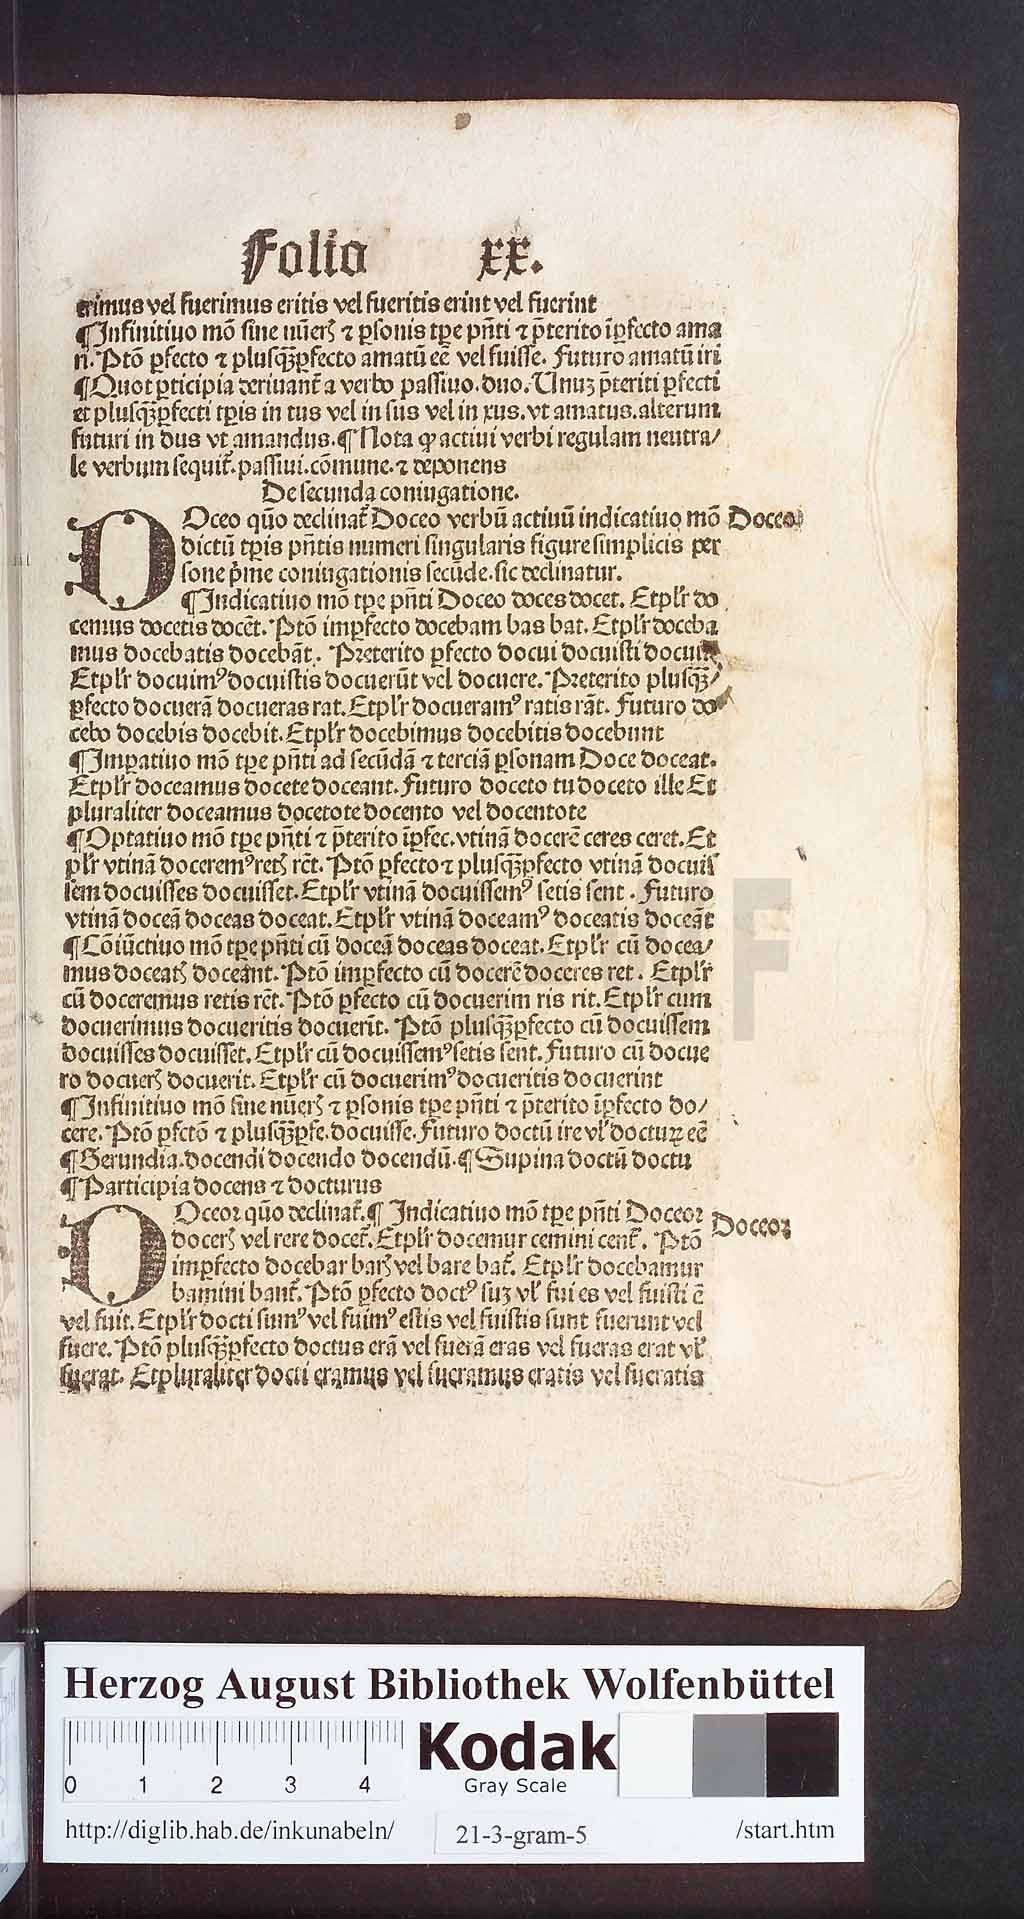 Folio xx.
erimus vel fuerimus eritis vel fueritis erint vel fuerint
¶Infinitiuo mō sine nūerꝭ ⁊ ꝑsonis tꝑe pn̄ti ⁊ p̄terito īꝑfecto ama
ri. Ptō ꝑfecto ⁊ plusqꝫꝑfecto amatū eē vel fuisse. Futuro amatū iri
¶Quot ꝑticipia deriuant̄ a verbo passiuo. duo. Unuꝫ p̄teriti ꝑfecti
et plusqꝫꝑfecti tꝑis in tus vel in sus vel in xus. vt amatus. alterum
futuri in dus vt amandus. ¶Nota ꝙ actiui verbi regulam neutra/
le verbum sequit̄. passiui. cōmune. ⁊ deponens
De secunda coniugatione.
DOceo quō declinat̄ Doceo verbū actiuū indicatiuo mō
Doceo
dictū tꝑis pn̄tis numeri singularis figure simplicis per
sone p̄me coniugationis secūde. sic declinatur.
¶Indicatiuo mō tꝑe pn̄ti Doceo doces docet. Et plr̄ do
cemus docetis docēt. Ptō imꝑfecto docebam bas bat. Et plr̄ doceba
mus docebatis docebāt. Preterito ꝑfecto docui docuisti docuit
Et plr̄ docuimꝰ docuistis docuerūt vel docuere. Preterito plusqꝫ/
ꝑfecto docuerā docueras rat. Et plr̄ docueramꝰ ratis rāt. Futuro do
cebo docebis docebit. Et plr̄ docebimus docebitis docebunt
¶Imꝑatiuo mō tꝑe pn̄ti ad secūdā ⁊ terciā ꝑsonam Doce doceat.
Et plr̄ doceamus docete doceant. Futuro doceto tu doceto ille Et
pluraliter doceamus docetote docento vel docentote
¶Optatiuo mō tꝑe pn̄ti ⁊ p̄terito īꝑfec. vtinā docerē ceres ceret. Et
plr̄ vtinā doceremꝰ retꝭ rēt. Ptō ꝑfecto ⁊ plusqꝫꝑfecto vtinā docuis
sem docuisses docuisset. Et plr̄ vtinā docuissemꝰ setis sent. Futuro
vtinā doceā doceas doceat. Et plr̄ vtinā doceamꝰ doceatis doceāt
¶Cōiūctiuo mō tꝑe pn̄ti cū doceā doceas doceat. Et plr̄ cū docea/
mus doceatꝭ doceant. Ptō imꝑfecto cū docerē doceres ret. Et plr̄
cū doceremus retis rēt. Ptō ꝑfecto cū docuerim ris rit. Et plr̄ cum
docuerimus docueritis docuerīt. Ptō plusqꝫꝑfecto cū docuissem
docuisses docuisset. Et plr̄ cū docuissemꝰ setis sent. Futuro cū docue
ro docuerꝭ docuerit. Et plr̄ cū docuerimꝰ docueritis docuerint
¶Infinitiuo mō sine nūerꝭ ⁊ ꝑsonis tꝑe pn̄ti ⁊ p̄terito īꝑfecto do/
cere. Ptō ꝑfctō ⁊ plusqꝫꝑfe. docuisse. Futuro doctū ire vl̄ docturꝫ eē
¶Gerundia. docendi docendo docendū. ¶Supina doctū doctu
¶Participia docens ⁊ docturus
DOceor quō declinat̄. ¶ Indicatiuo mō tꝑe pn̄ti Doceor
Doceor
docerꝭ vel rere docet̄. Et plr̄ docemur cemini cent̄. Ptō
imꝑfecto docebar barꝭ vel bare bat̄. Et plr̄ docebamur
bamini bant̄. Ptō ꝑfecto doctꝰ suꝫ vl̄ fui es vel fuisti ē
vel fuit. Et plr̄ docti sumꝰ vel fuimꝰ estis vel fuistis sunt fuerunt vel
fuere. Ptō plusqꝫꝑfecto doctus erā vel fuerā eras vel fueras erat vl̄
fuerat. Et pluraliter docti eramus vel fueramus eratis vel fueratis
Herzog August Bibliothek Wolfenbüttel
0 1 2 3 4
Kodak
Gray Scale
http://diglib.hab.de/inkunabeln/ 21-3-gram-5 /start.htm